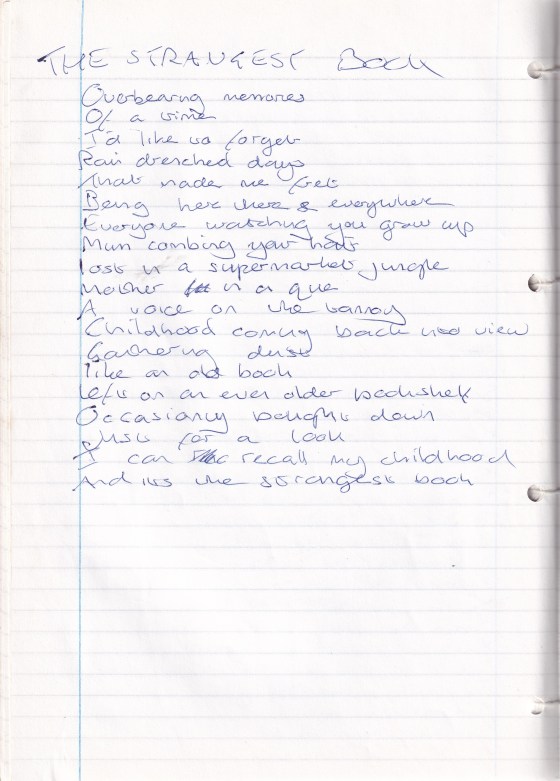 THE STRANGEST Book
Overbearing memories
Of a time
I'd like to forget
Rain drenched days
That made me fret
Being here there & everywhere
Everyone watching you grow up
Mum combing your hair
lost in a supermarket jungle
Mother in a que
A voice on the tannoy
Childhood coming back into view
Gathering dust
like an old book
left on an ever older bookshelf
Occasianly bought down
Just for a look
I can recall my childhood
And its the strangest book